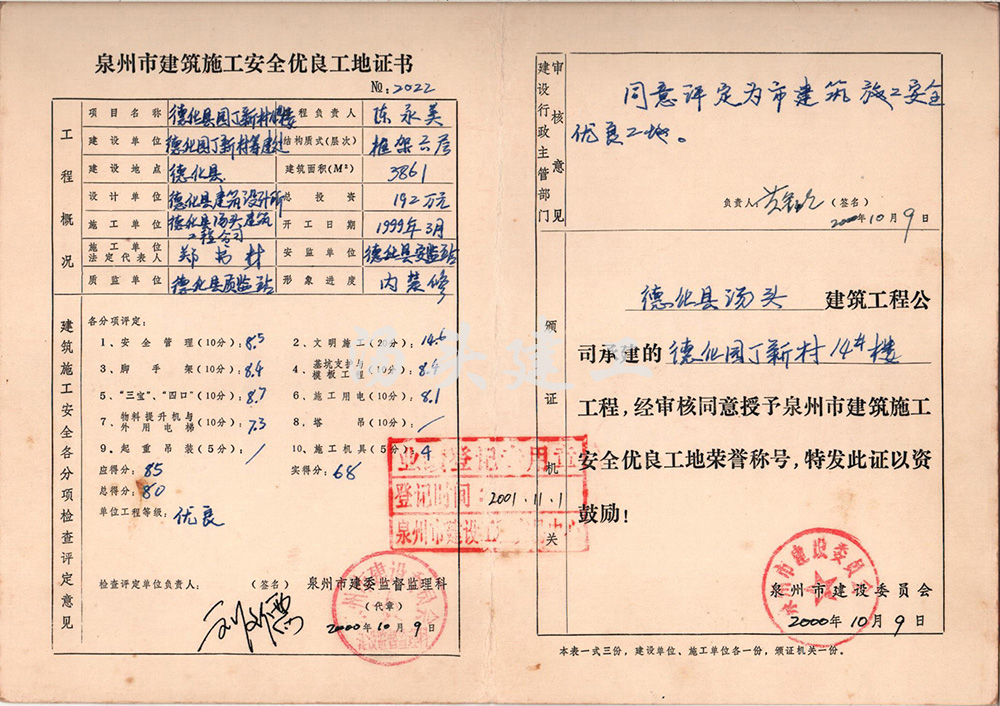 泉州市建筑施工安全优良工地证书
№:2022
工程概况
项目名称 德化县园丁新村 工程负责人 陈永美
建设单位 德化园丁新村筹建处 结构质式(层次) 框架六层
建设地点 德化县 建筑面积(M²) 3861
设计单位 德化县建筑设计所 总投资 192万元
施工单位 德化县汤头建筑工程公司 开工日期 1999年3月
施工单位法定代表人 郑 材 安监单位 德化县安监站
质监单位 德化县质监站 形象进度 内装修
建筑施工安全各分项检查评定意见
各分项评定:
1、安全管理(10分):8.5 2、文明施工(20分):14.6
3、脚手架(10分):8.4 4、基坑支护与模板工程(10分):8.4
5、“三宝”、“四口”(10分):8.7 6、施工用电(10分):8.1
7、物料提升机与外用电梯(10分):7.3 8、塔吊(10分):/
9、起重吊装(5分):/ 10、施工机具(5分):4
应得分:85 实得分:68
总得分:80
单位工程等级:优良
检查评定单位负责人: (签名) 泉州市建委监督监理科
(代章)
2000年10月9日
业绩登记专用章
登记时间:2001.11.1
泉州市建设工
建设行政主管部门
审核意见
同意评定为市建筑施工安全
优良工地。
负责人 (签名)
2000年10月9日
颁证机关
德化县汤头 建筑工程公
司承建的 德化园丁新村14#楼
工程,经审核同意授予泉州市建筑施工
安全优良工地荣誉称号,特发此证以资
鼓励!
泉州市建设委员会
泉州市建设委员会
2000年10月9日
本表一式三份,建设单位、施工单位各一份,颁证机关一份。
汤头建工